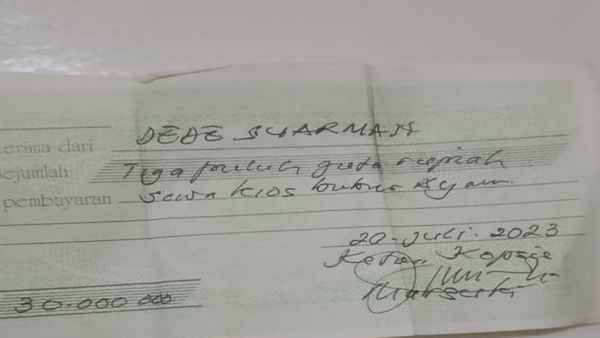 erima dari DEDE SUARMAN
ejumlah Tiga puluh juta rupiah
pembayaran Sewa kios bubur Ayam
20-Juli-2023
Ketua
30.000.000